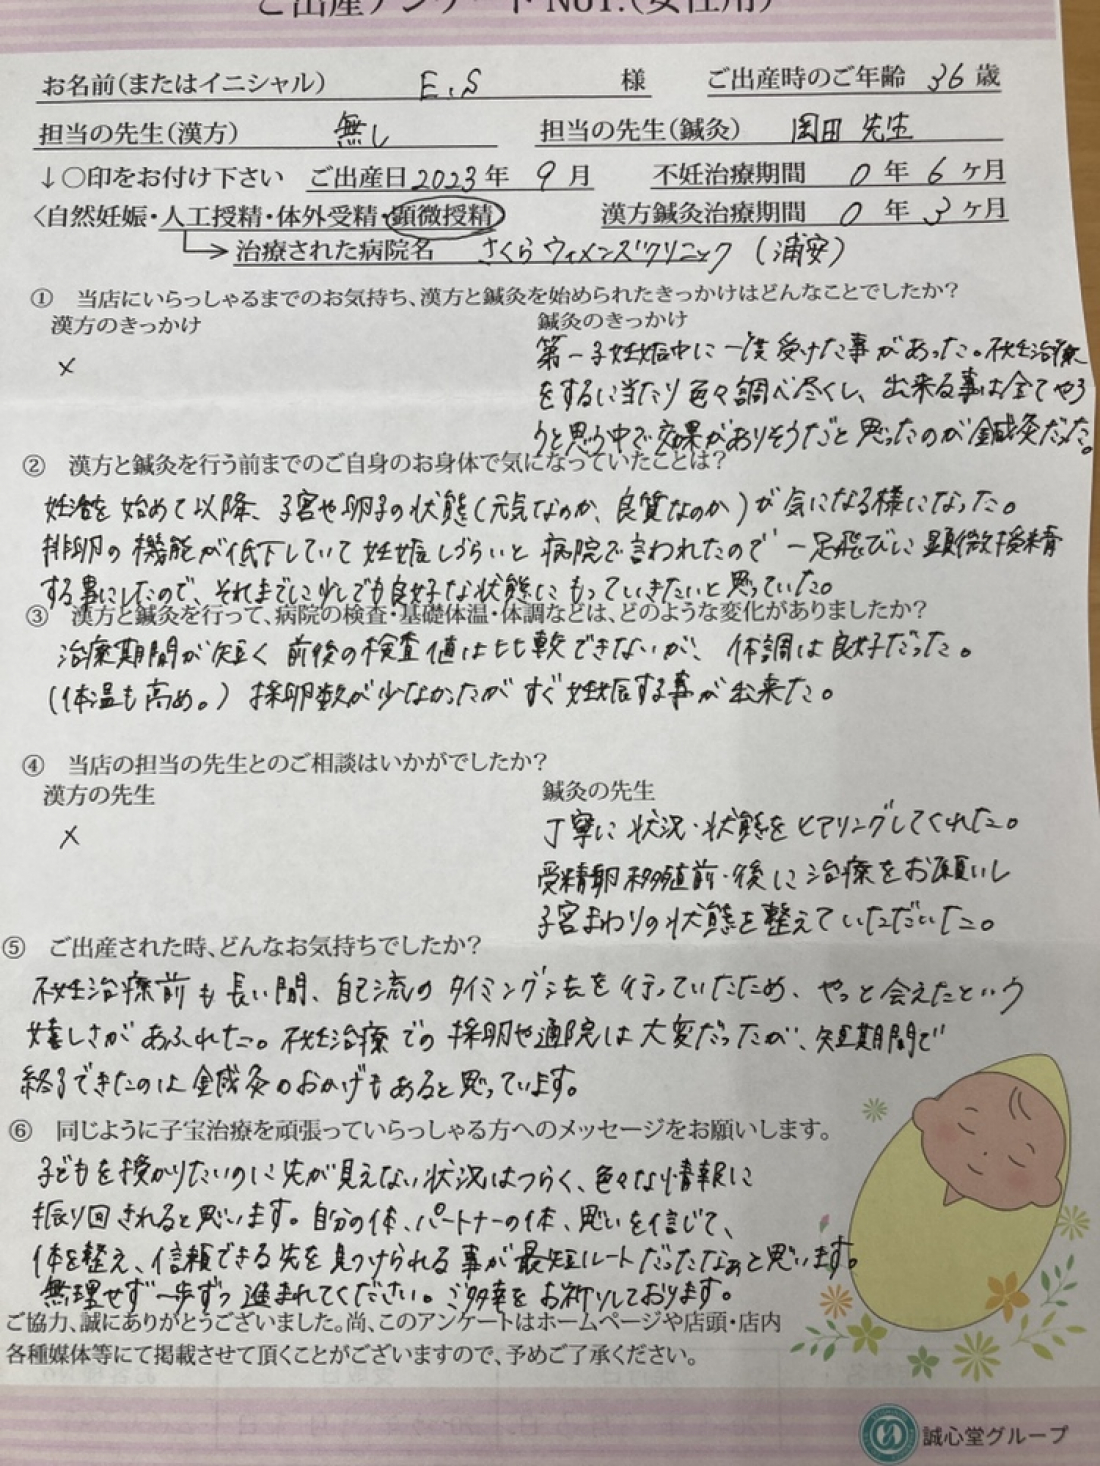 ご出産アンケート No1.(女性用)
お名前(またはイニシャル) E.S 様 ご出産時のご年齢 36 歳
担当の先生(漢方) 無し 担当の先生(鍼灸) 岡田 先生
↓○印をお付け下さい ご出産日 2023年 9 月 不妊治療期間 0 年 6 ヶ月
〈自然妊娠・人工授精・体外受精・顕微授精 漢方鍼灸治療期間 0 年 3 ヶ月
治療された病院名 さくらウィメンズクリニック (浦安)
① 当店にいらっしゃるまでのお気持ち、漢方と鍼灸を始められたきっかけはどんなことでしたか?
漢方のきっかけ 鍼灸のきっかけ
× 第一子妊娠中に一度受けた事があった。不妊治療
をするに当たり色々調べ尽くし、出来る事は全てやろ
うと思う中で効果がありそうだと思ったのが鍼灸だった。
② 漢方と鍼灸を行う前までのご自身のお身体で気になっていたことは?
妊活を始めて以降、子宮や卵子の状態(元気なのか、良質なのか)が気になる様になった。
排卵の機能が低下していて妊娠しづらいと病院で言われたので一足飛びに顕微授精
する事にしたので、それまでに少しでも良好な状態にもっていきたいと思っていた。
③ 漢方と鍼灸を行って、病院の検査・基礎体温・体調などは、どのような変化がありましたか?
治療期間が短く前後の検査値は比較できないが、体調は良好だった。
(体温も高め。)採卵数が少なかったがすぐ妊娠する事が出来た。
④ 当店の担当の先生とのご相談はいかがでしたか?
漢方の先生 鍼灸の先生
× 丁寧に状況・状態をヒアリングしてくれた。
受精卵移植前・後に治療をお願いし
子宮まわりの状態を整えていただいた。
⑤ ご出産された時、どんなお気持ちでしたか?
不妊治療前も長い間、自己流のタイミング法を行っていたため、やっと会えたという
嬉しさがあふれた。不妊治療での採卵や通院は大変だったが、短期間で
終了できたのは鍼灸のおかげもあると思っています。
⑥ 同じように子宝治療を頑張っていらっしゃる方へのメッセージをお願いします。
子どもを授かりたいのに先が見えない状況はつらく、色々な情報に
振り回されると思います。自分の体、パートナーの体、思いを信じて、
体を整え、信頼できる先を見つけられる事が最短ルートだったなぁと思います。
無理せず一歩ずつ進まれてください。ご多幸をお祈りしております。
ご協力、誠にありがとうございました。尚、このアンケートはホームページや店頭・店内
各種媒体等にて掲載させて頂くことがございますので、予めご了承ください。
誠心堂グループ